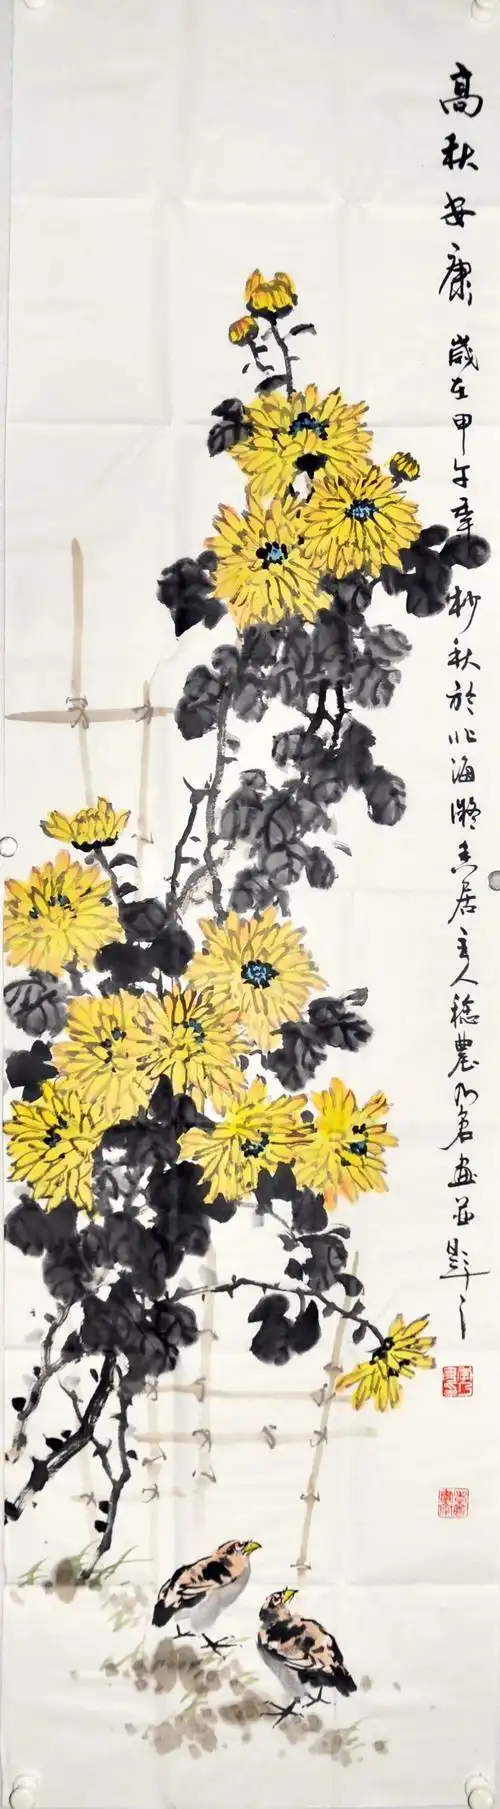 高秋安康 歲在甲午年杪秋於北海凝香居主人稔農沙君畫並題之